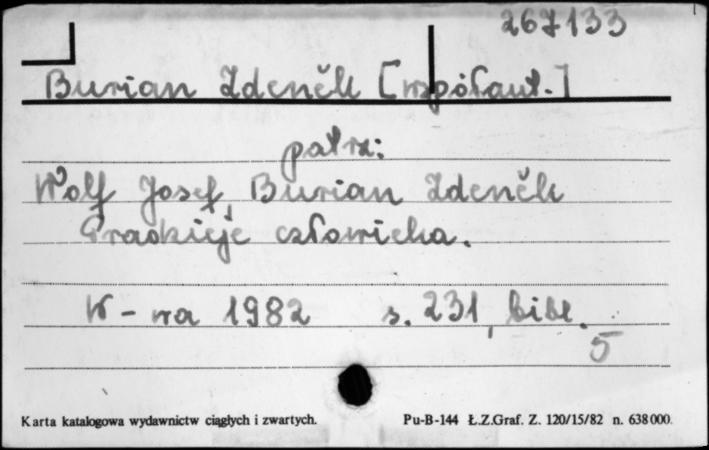 267133
Burian Zdeněk [współaut.]
patrz:
Wolf Josef, Burian Zdeněk
Pradzieje człowieka.
W-wa 1982 s. 231, bibl.
5
Karta katalogowa wydawnictw ciągłych i zwartych. Pu-B-144 Ł.Z.Graf. Z. 120/15/82 n. 638 000.